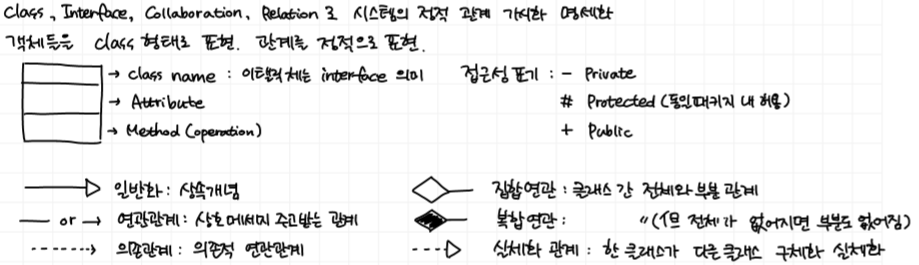 Class, Interface, Collaboration, Relation 로 시스템의 정적 관계 가시화 명세화
객체들을 class 형태로 표현. 관계를 정적으로 표현.
→ class name : 이탤릭체는 interface 의미
→ Attribute
→ Method (operation)
접근성 표기 : - Private
# Protected (동일패키지 내 허용)
+ Public
일반화 : 상속개념
— or → 연관관계 : 상호 메세지 주고받는 관계
의존관계 : 의존적 연관관계
집합연관 : 클래스 간 전체와 부분 관계
복합연관 : " (단 전체가 없어지면 부분도 없어짐)
실체화 관계 : 한 클래스가 다른 클래스 구체화 실체화